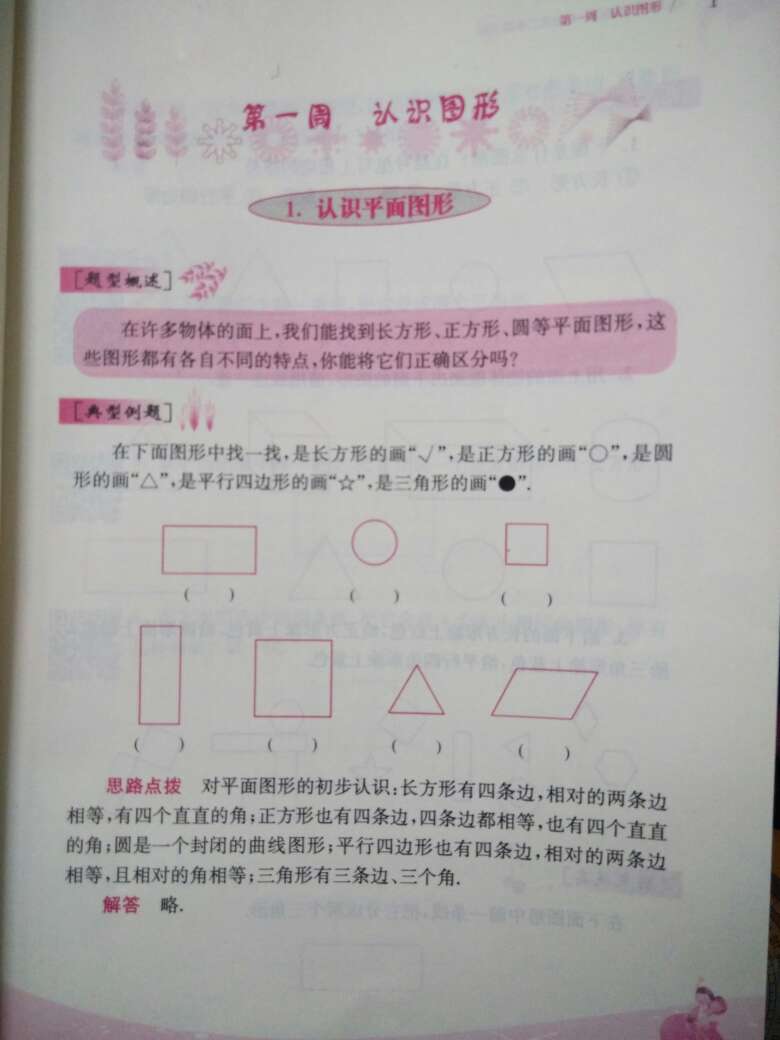 第一周 认识图形 1
第一周 认识图形
1. 认识平面图形
[题型概述]
在许多物体的面上,我们能找到长方形、正方形、圆等平面图形,这
些图形都有各自不同的特点,你能将它们正确区分吗?
[典型例题]
在下面图形中找一找,是长方形的画“√”,是正方形的画“○”,是圆
形的画“△”,是平行四边形的画“☆”,是三角形的画“●”.
( ) ( ) ( )
( ) ( ) ( ) ( )
思路点拨 对平面图形的初步认识:长方形有四条边,相对的两条边
相等,有四个直直的角;正方形也有四条边,四条边都相等,也有四个直直
的角;圆是一个封闭的曲线图形;平行四边形也有四条边,相对的两条边
相等,且相对的角相等;三角形有三条边、三个角.
解答 略.